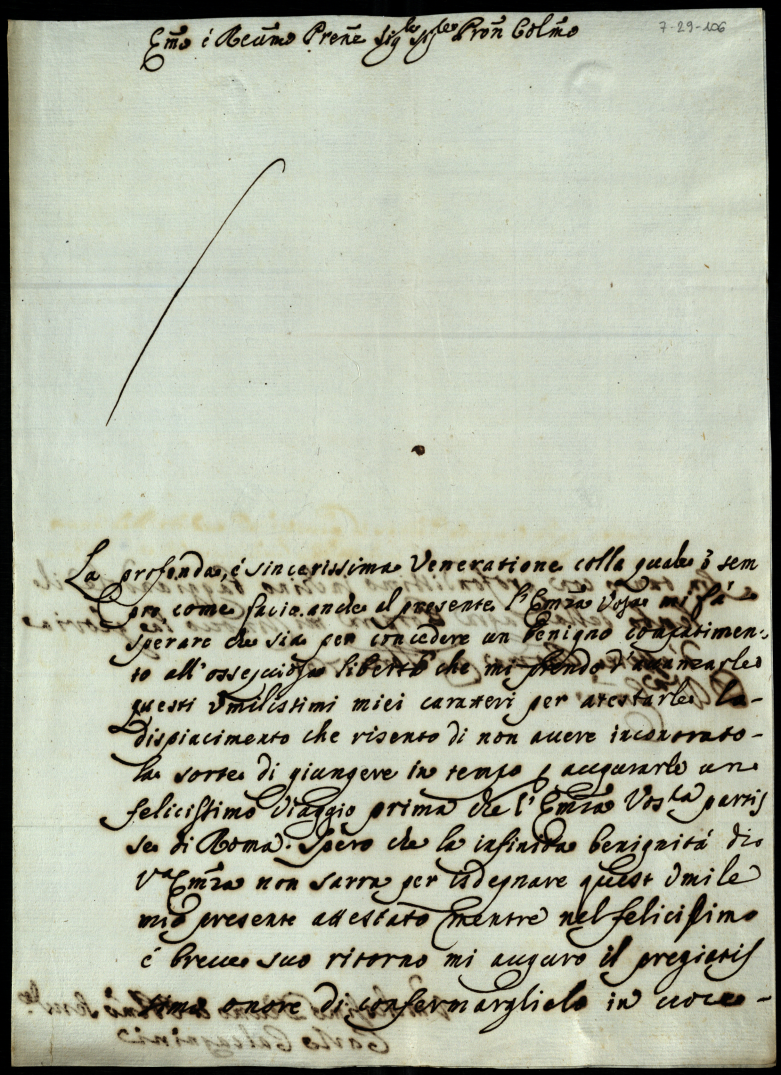 7-29-106
Em̃o é Reũmo Prẽne Sig.le Sig.le Pron̄ Colm̄o
La profonda, é sincerissima Veneratione colla quale ò sem
pre come facio anche al presente l'Em̃za Vosa mi fá
sperare che sia per concedere un benigno compatimen-
to all'ossequiosa libertà che mi prendo d'auanzarle
questi Vmilistimi miei caratteri per atestarle la-
dispiacimento che risento di non auere incontrato-
la sorte di giungere in tempo p augurarle un
felicissimo Viaggio prima che l'Em̃za Vos.ta partis
se di Roma. Spero che la infinita benignità di
V.a Em̃za non sarra per isdegnare quest Vmile
mio presente attestato mentre nel felicissimo
é breue suo ritorno mi auguro il pregiatis
simo onore di confermarglielo in uoce-